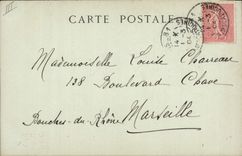 CARTE POSTALE
Mademoiselle Louise Chaireau
138 Boulevard Chave
Marseille
Bouches-du-Rhône